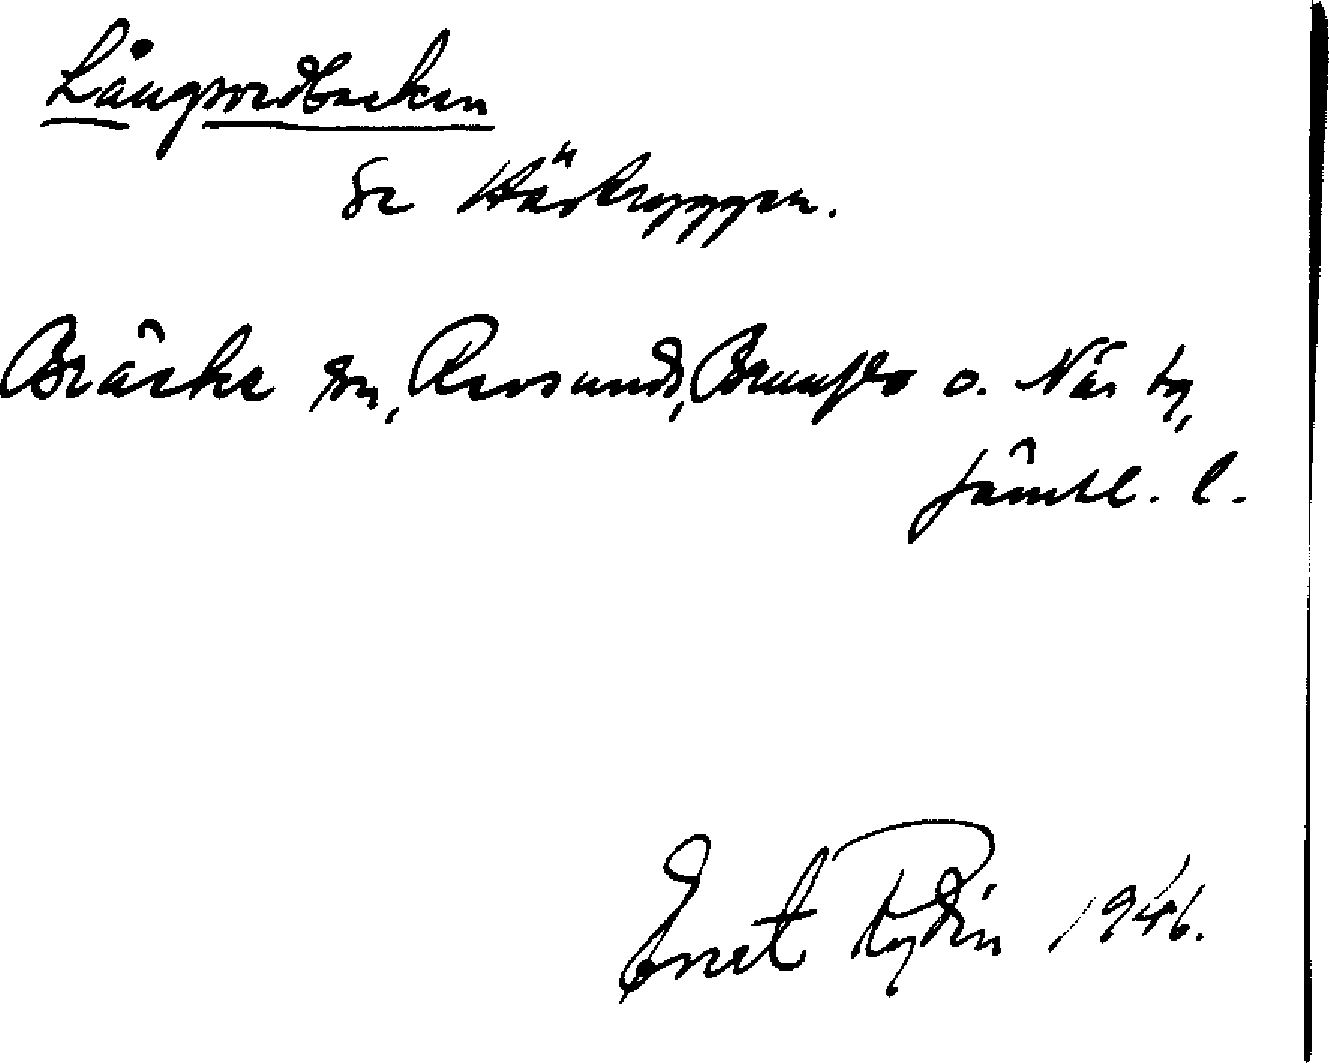 Långvredbacken
Se Hästryggen.
Bräcke sn, Revsunds, Brunflo o. Näs tg,
Jämtl. l.
Ernst Rydin 1946.